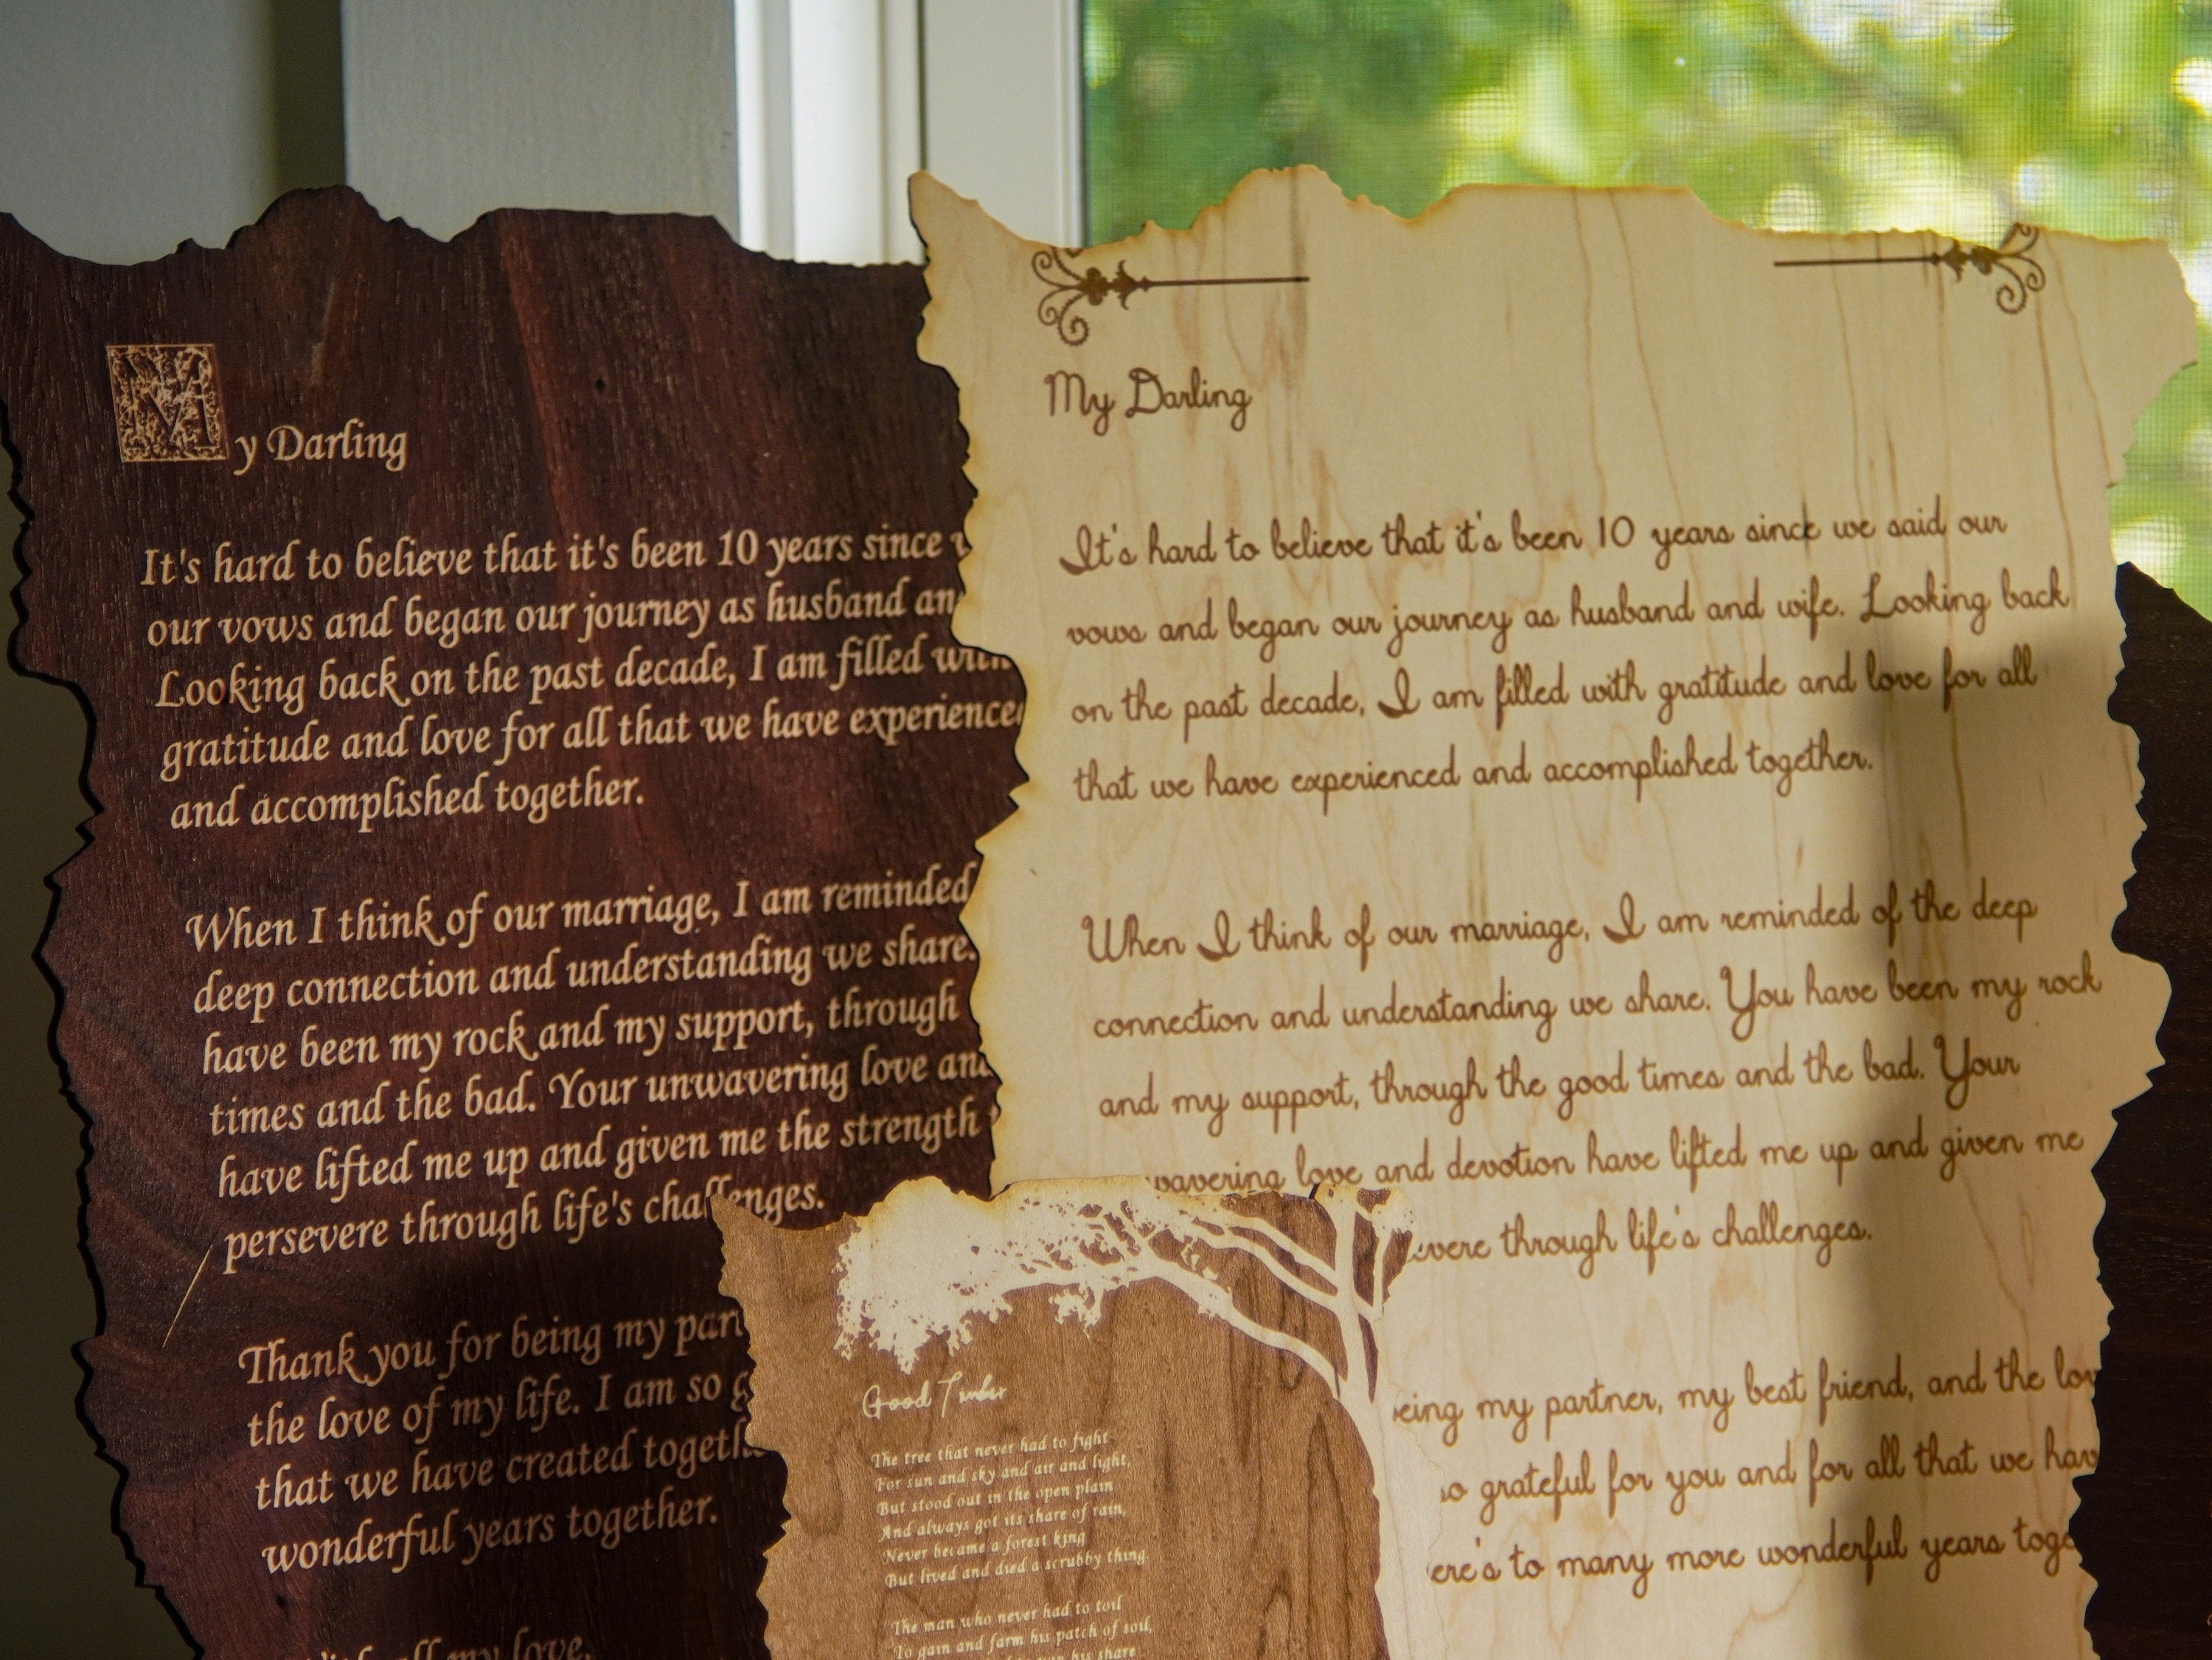 My Darling
It's hard to believe that it's been 10 years since
our vows and began our journey as husband
Looking back on the past decade, I am filled with
gratitude and love for all that we have
and accomplished together.
When I think of our marriage, I am reminded
deep connection and understanding we share.
have been my rock and my support, through
times and the bad. Your unwavering love
have lifted me up and given me the strength
persevere through life's challenges.
Thank you for being my
the love of my life. I am so
that we have created
wonderful years together.
all my love,
My Darling
It's hard to believe that it's been 10 years since we said our
vows and began our journey as husband and wife. Looking back
on the past decade, I am filled with gratitude and love for all
that we have experienced and accomplished together.
When I think of our marriage, I am reminded of the deep
connection and understanding we share. You have been my rock
and my support, through the good times and the bad. Your
love and devotion have lifted me up and given me
through life's challenges.
my partner, my best friend, and the
so grateful for you and for all that we
to many more wonderful years
Good Timber
The tree that never had to fight
For sun and sky and air and light,
But stood out in the open plain
And always got its share of rain,
Never became a forest king
But lived and died a scrubby thing.
The man who never had to toil
To gain and farm his patch of soil,
his share